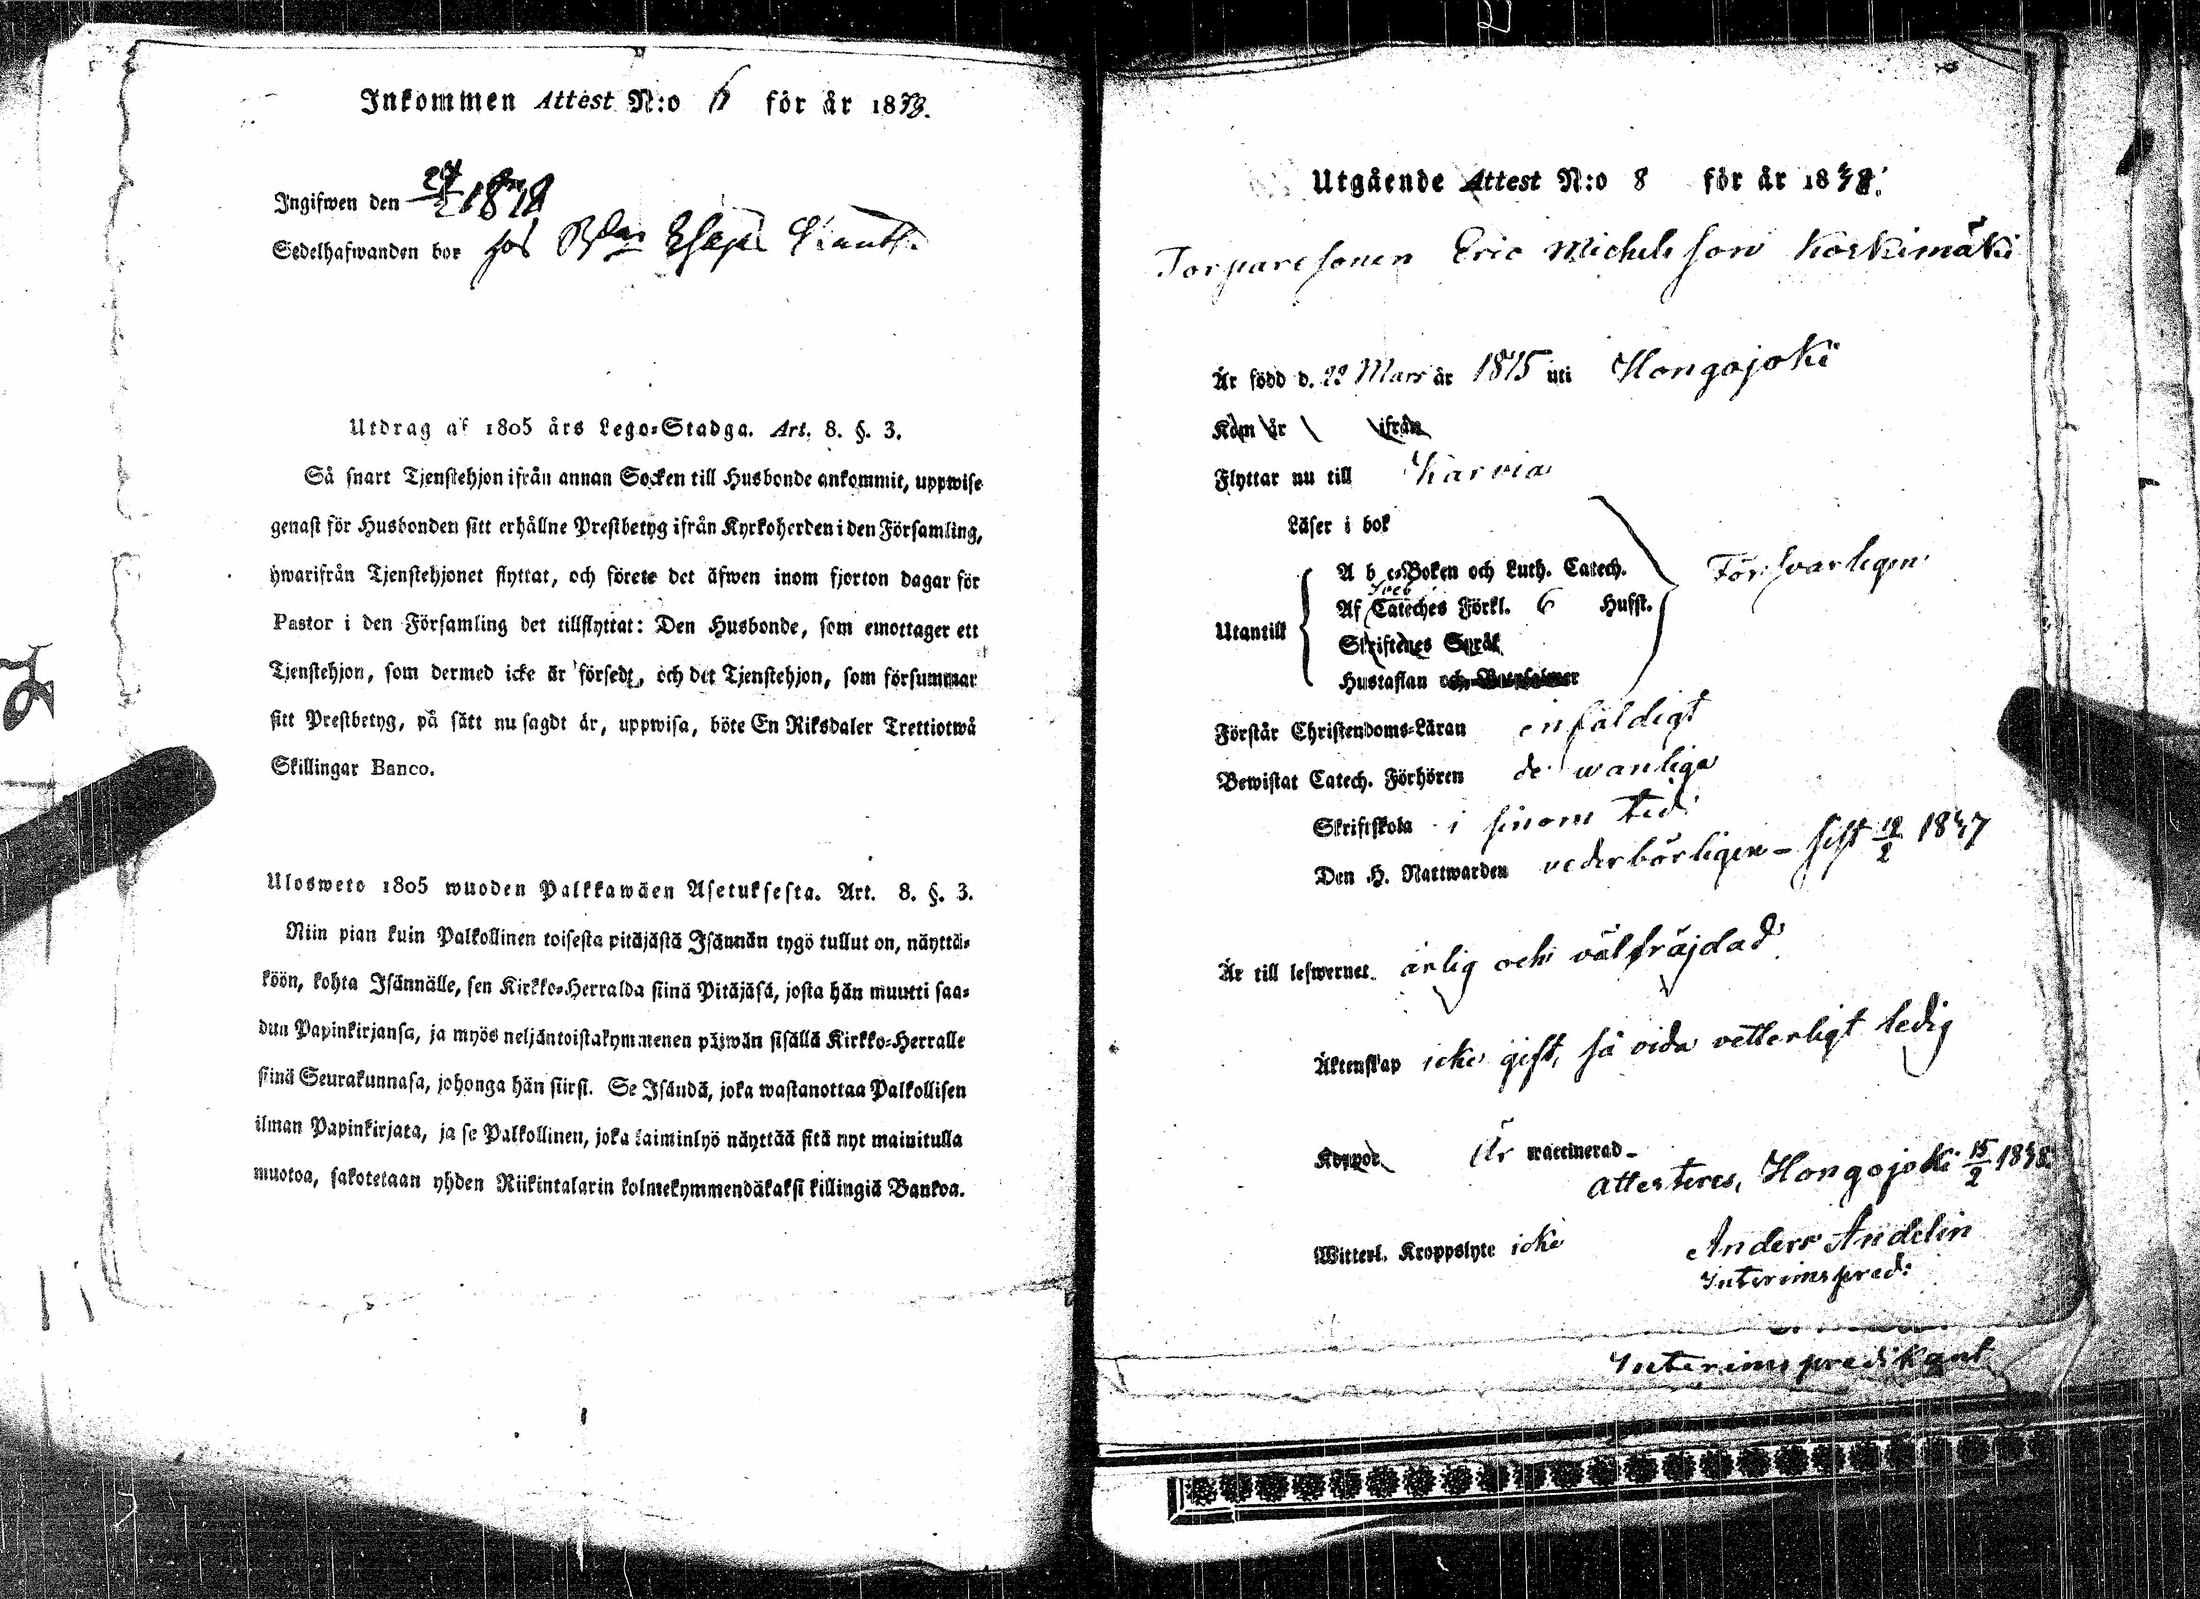 Inkommen Attest N:o 6 för år 1838.
Ingifwen den 24/2 1838
Sedelhafwanden bor hos
Utdrag af 1805 års Lego-Stadga. Art. 8. §. 3.
Så snart Tjenstehjon ifrån annan Socken till Husbonde ankommit, uppwise
genast för Husbonden sitt erhållne Prestbetyg ifrån Kyrkoherden i den Församling,
hwarifrån Tjenstehjonet flyttat, och förete det äfwen inom fjorton dagar för
Pastor i den Församling det tillflyttat: Den Husbonde, som emottager ett
Tjenstehjon, som dermed icke är försedt, och det Tjenstehjon, som försummar
sitt Prestbetyg, på sätt nu sagdt är, uppwisa, böte En Riksdaler Trettiotwå
Skillingar Banco.
Ulosweto 1805 wuoden Palkkawäen Asetuksesta. Art. 8. §. 3.
Niin pian kuin Palkollinen toisesta pitäjästä Isännän tygö tullut on, näyttä-
köön, kohta Isännälle, sen Kirkko-Herralda siinä Pitäjäsä, josta hän muutti saa-
dun Papinkirjansa, ja myös neljäntoistakymmenen päiwän sisällä Kirkko-Herralle
siinä Seurakunnasa, johonga hän siirsi. Se Isändä, joka wastanottaa Palkollisen
ilman Papinkirjata, ja se Palkollinen, joka laiminlyö näyttää sitä nyt mainitulla
muotoa, sakotetaan yhden Riikintalarin kolmekymmendäkaksi killingiä Bankoa.
Utgående Attest N:o 8 för år 1838.
Torparesonen Eric Michelsson Koskimäki
Är född d. 22 Mars år 1815 uti Hongojoki
Kom år ifrån
Flyttar nu till Karvia
Läser i bok
A b c-Boken och Luth. Catech. Försvarligen
Sveb
Af Cateches Förkl. 6 Hufst.
Utantill
Skriftenes Språk
Hustaflan och
Förstår Christendoms-Läran enfäldigt
Bewistat Catech. Förhören de wanliga
Skriftskola i sinom tid
Den H. Nattwarden vederbörligen - sist 12/2 1837
Är till lefwernet ärlig och välfräjdad
Äktenskap icke gift, så vida vetterligt ledig
Koppor Är waccinerad -
Attesteres, Hongojoki 15/2 1838
Witterl. Kroppslyte icke
Anders Andelin
Interimspred:
Interims predikant